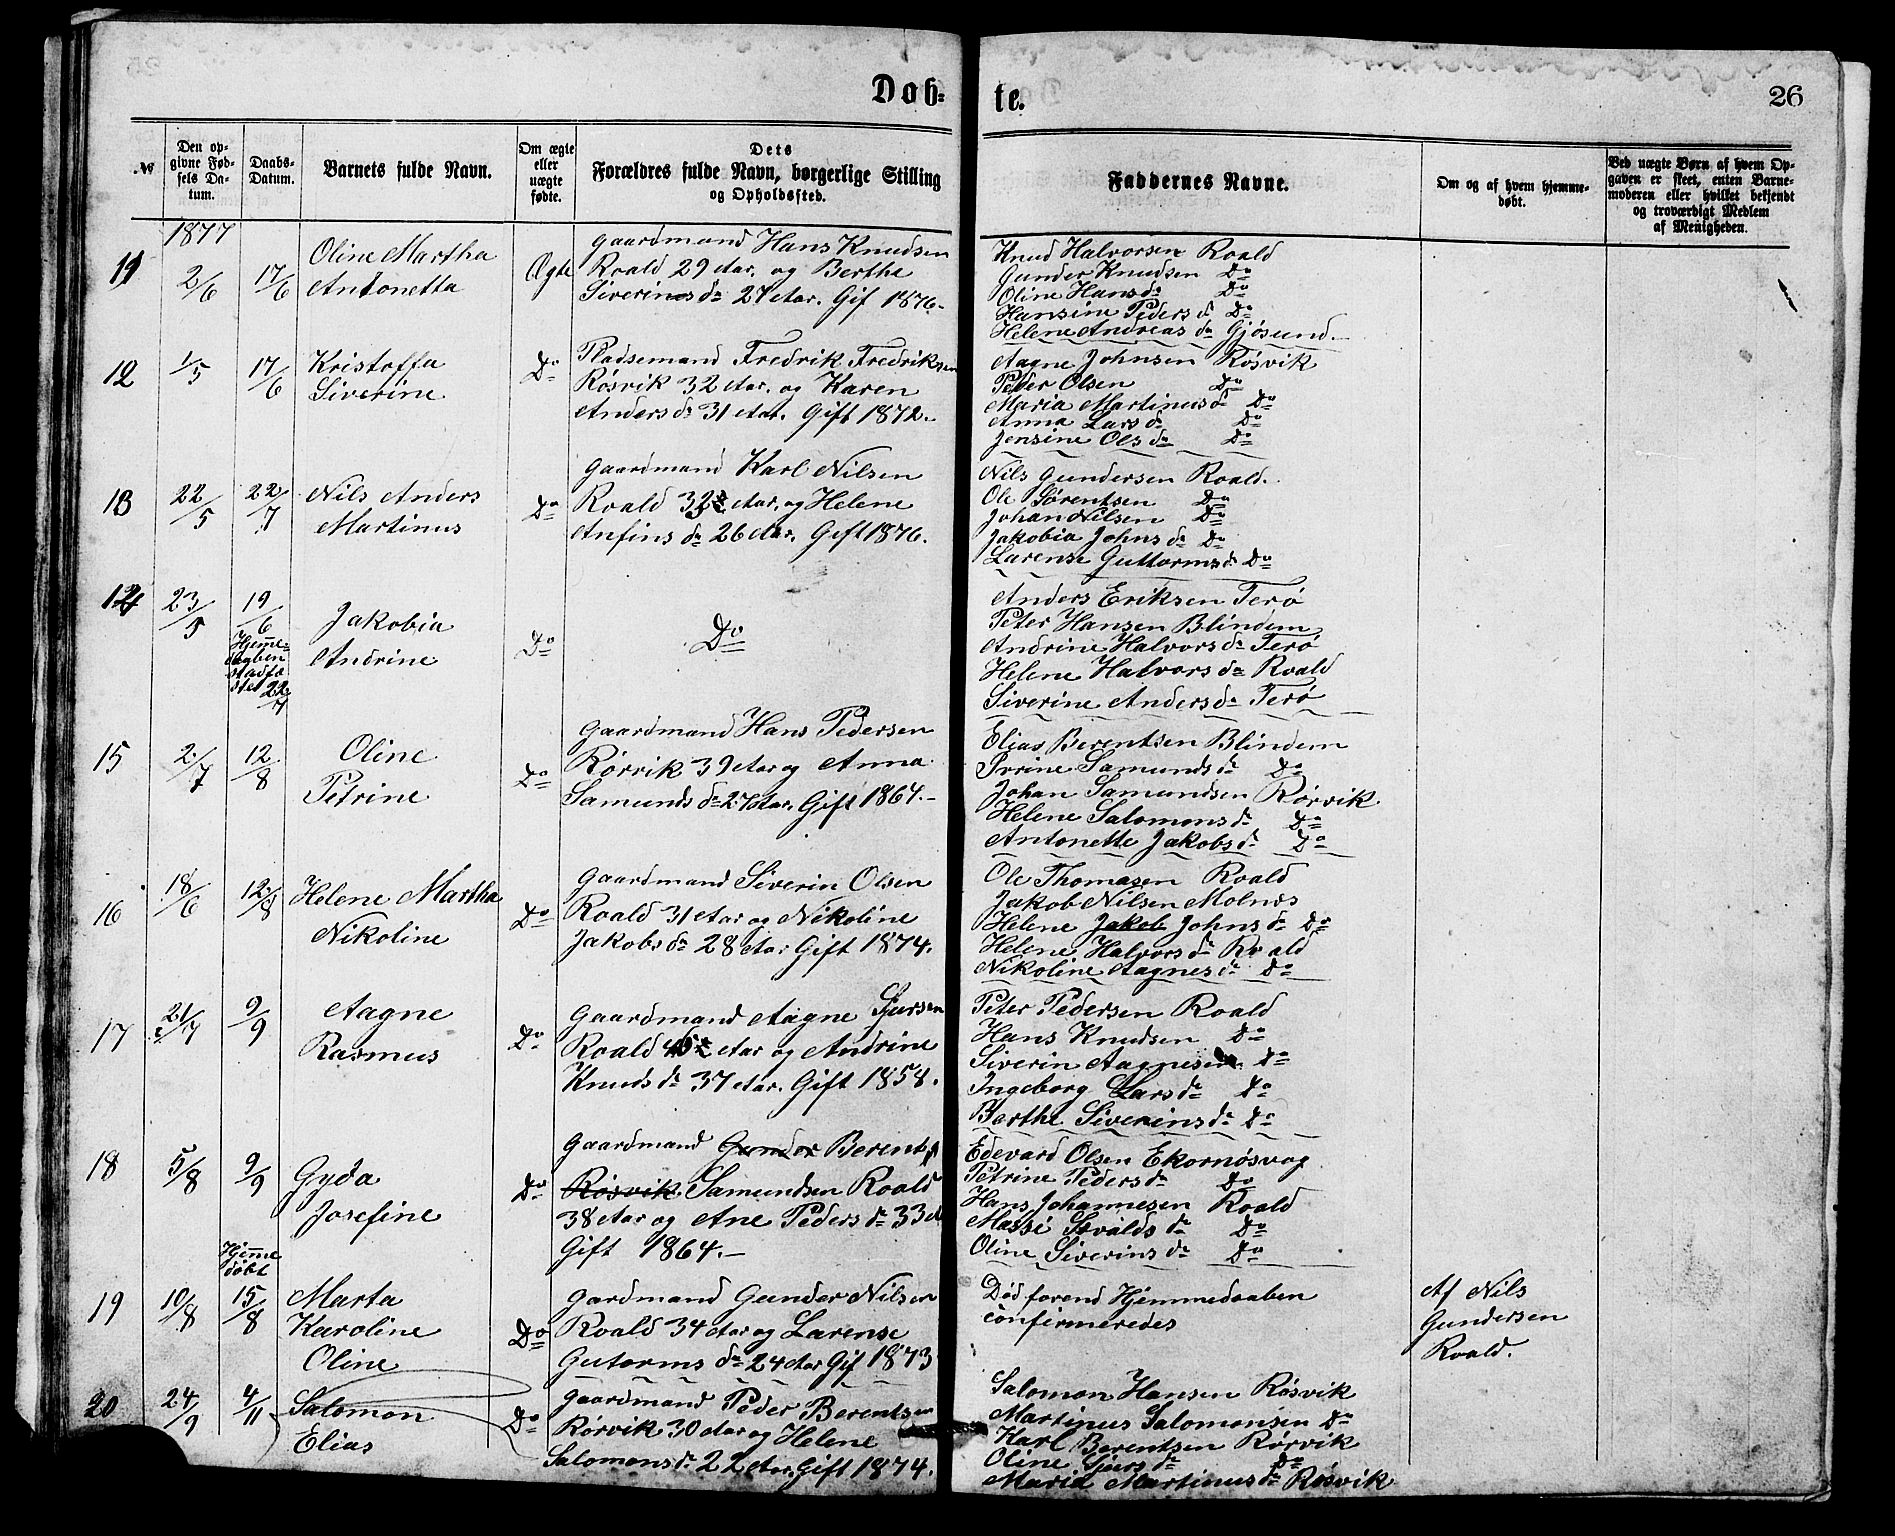 Døb-
te.
26
№
Den op-
givne Fød-
sels Da-
tum.
Daabs-
Datum.
Barnets fulde Navn.
Om ægte
eller
uægte
fødte.
Dets
Forældres fulde Navn, borgerlige Stilling
og Opholdssted.
Faddernes Navne.
Om og af hvem hjemme-
døbt.
Ved uægte Børn af hvem Op-
gaven er skeet, enten Barne-
moderen eller hvilket bekjendt
og troværdigt Medlem
af Menigheden.
1877
11
2/6
17/6
Oline Martha
Antonetta
Ægte
Gaardmand Hans Knudsen
Roald 29 Aar. og Berthe
Siverins dr 27 Aar. Gif 1876.
Knud Halvorsen Roald
Gunder Knudsen Do
Oline Hans dr Do
Hansine Peders d Do
Helene Andreas dr Gjøsund
12
1/5
17/6
Kristoffa
Siverine
Do
Pladsemand Fredrik Fredriksen
Røsvik 32 Aar. og Karen
Anders dr 31 Aar. Gift 1872.
Aagne Johnsen Røsvik
Peder Olsen Do
Maria Martinus dr Do
Anna Lars dr Do
Jensine Ols dr Do
13
22/5
22/7
Nils Anders
Martinus
Do
Gaardmand Karl Nilsen
Roald 32 Aar. og Helene
Anfins dr 26 Aar. Gift 1876.
Nils Gundersen Roald.
Ole Sørentsen Do
Johan Nilsen Do
Jakobia Johns dr Do
Larense Guttorms dr Do
14
23/5
19/6
Hjemme-
daaben
stadfæ
stet 22/7
Jakobia
Andrine
Do
Do
Anders Eriksen Terø
Peter Hansen Blindem
Andrine Halvors dr Terø
Helene Halvors dr Roald
Siverine Anders dr Terø
15
2/7
12/8
Oline
Petrine
Do
Gaardmand Hans Pedersen
Rørvik 39 Aar og Anna
Samunds dr 27 Aar. Gift 1864.
Elias Berentsen Blindem
Samunds dr Do
Johan Samundsen Rørvik
Helene Salomons dr Do
Antonette Jakobs dr Do
16
18/6
12/8
Helene Martha
Nikoline
Do
Gaardmand Siverin Olsen
Roald 31 Aar og Nikoline
Jakobs dr 28 Aar Gift 1874.
Ole Thomasen Roald
Jakob Nilsen Molnes
Helene Jakob Johns dr Do
Helene Halvors dr Roald
Nikoline Aagnes dr Do
17
21/7
9/9
Aagne
Rasmus
Do
Gaardmand Aagne Sjursen
Roald Aar og Andrine
Knuds dr 37 Aar. Gift 1858.
Peter Pedersen Roald
Hans Knudsen Do
Siverin Aagnesen Do
Ingeborg Lars dr Do
Berthe Siverins dr Do
18
5/8
9/9
Gyda
Josefine
Do
Gaardmand Gunder Berent
Røsvik Samundsen Roald
38 Aar og Ane Peders dr 33 A
Gift 1864.
Edevard Olsen Ekornøsvag
Petrine Peders dr Do
Hans Johannesen Roald
Massi Sevalds dr Do
Oline Siverins dr Do
19
10/8
Hjemme
døbt
15/8
Marta
Karoline
Oline
Do
Gardmand Gunder Nilsen
Roald 34 Aar og Larense
Gutorms dr 24 Aar Gif 1873
Død forend Hjemmedaaben
confirmeredes
Af Nils
Gundersen
Roald.
20
24/9
4/11
Salomon
Elias
Do
Gaardmand Peder Berentsen
Rørvik 30 Aar og Helene
Salomons dr 22 Aar. Gift 1874.
Salomon Hansen Røsvik
Martinus Salomonsen Do
Karl Berentsen Rørvik
Oline Sjurs dr Do
Maria Martinus dr Røsvik